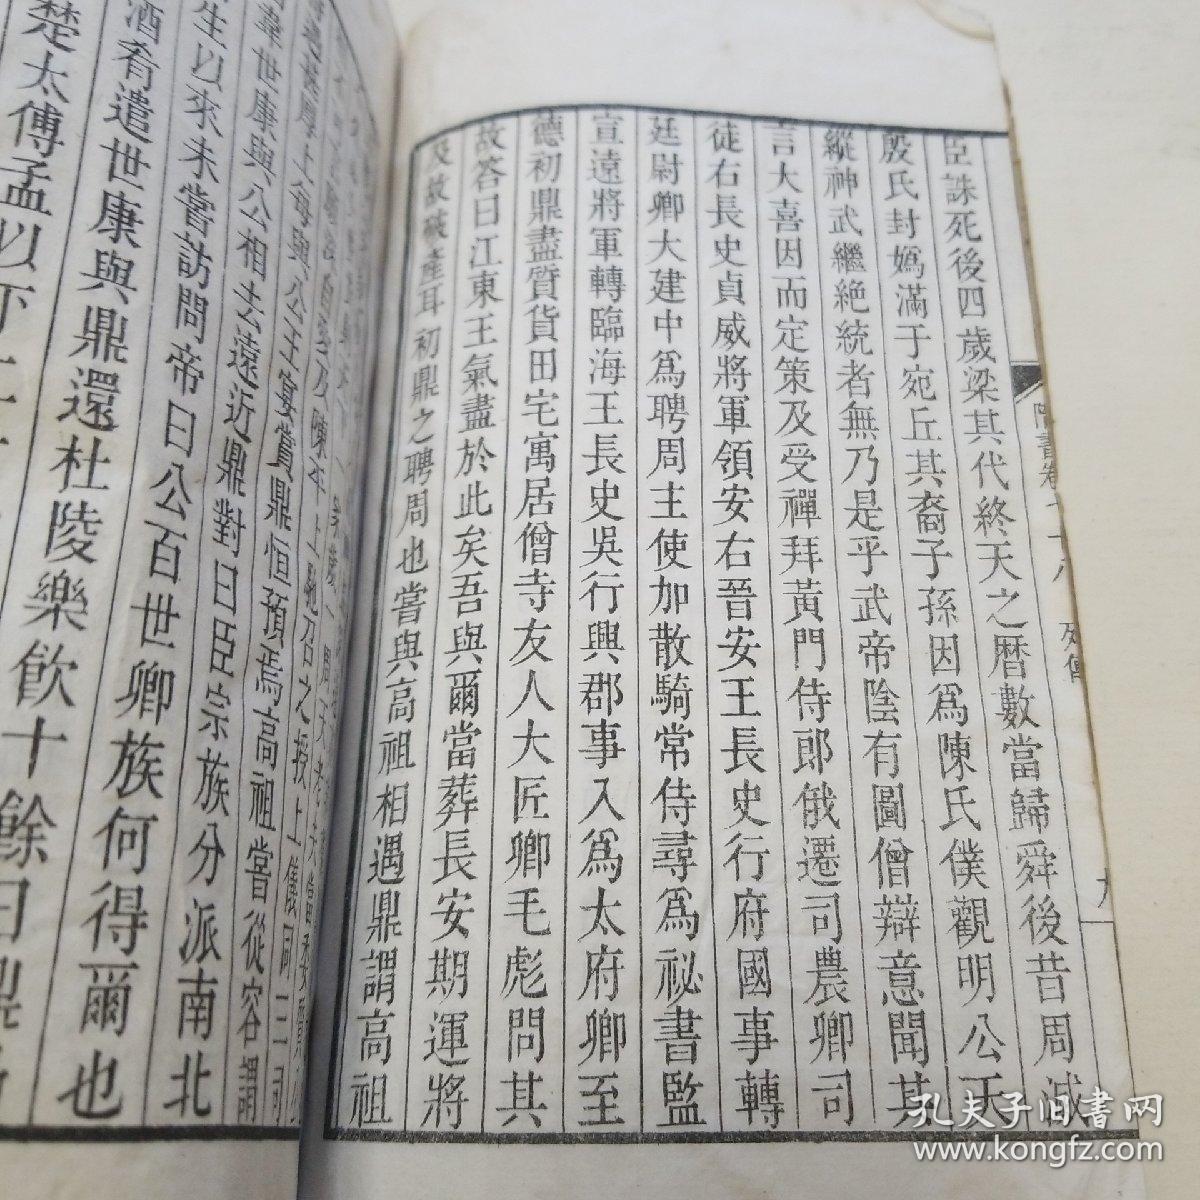 臣誅死後四歲梁其代終天之曆數當歸舜後昔周滅
殷氏封嬀滿于宛丘其裔子孫因爲陳氏僕觀明公天
縱神武繼絶統者無乃是乎武帝陰有圖僧辯意聞其
言大喜因而定策及受禪拜黃門侍郎俄遷司農卿司
徒右長史貞威將軍領安右晉安王長史行府國事轉
廷尉卿大建中爲聘周主使加散騎常侍尋爲祕書監
宣遠將軍轉臨海王長史吳行興郡事入爲太府卿至
德初鼎盡質貨田宅寓居僧寺友人大匠卿毛彪問其
故答曰江東王氣盡於此矣吾與爾當葬長安期運將
及故破產耳初鼎之聘周也嘗與高祖相遇鼎謂高祖
上馳召之授上儀同三司
遇甚厚上每與公王宴賞鼎恒預焉高祖嘗從容謂
韋世康與公相去遠近鼎對曰臣宗族分派南北
生以來未嘗訪問帝曰公百世卿族何得爾也
酒肴遣世康與鼎還杜陵樂飲十餘日鼎
楚太傅孟以下二十
隋書卷七十八 列傳
九
孔夫子旧書网
www.kongfz.com